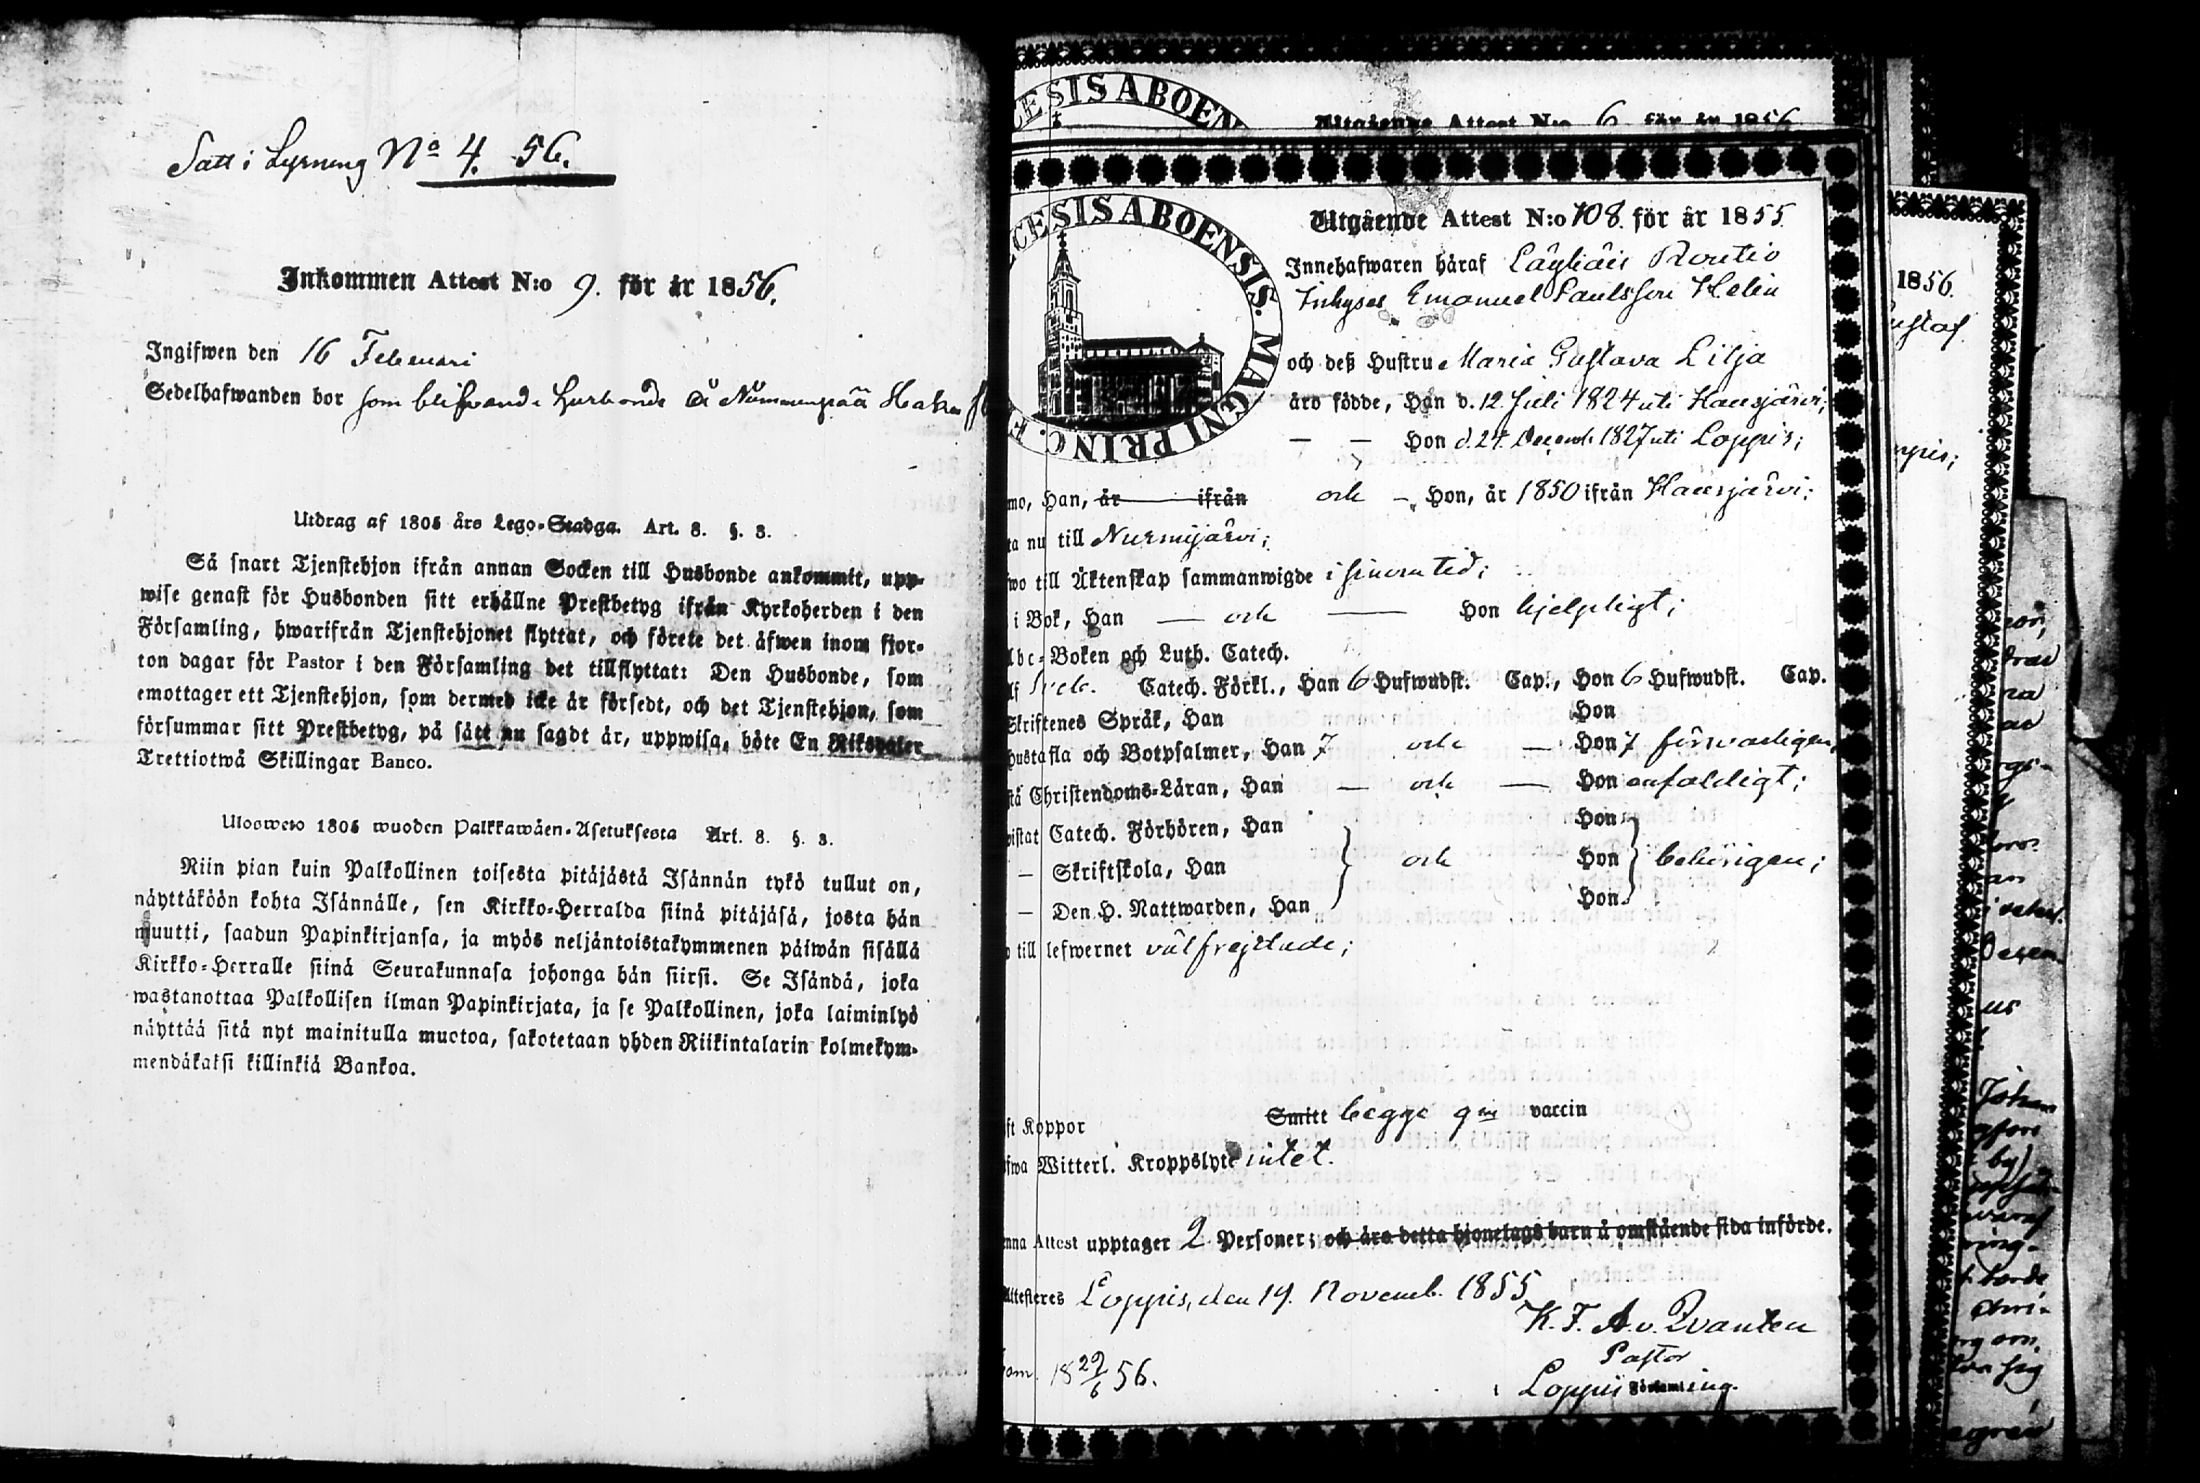 Satt i Lysning No 4. 56.
Inkommen Attest N:o 9. för år 1856.
Ingifwen den 16 Februari
Sedelhafwanden bor som blifvande husbonde å Nummenpää
Utdrag af 1805 års Lego-Stadga. Art. 8. §. 3.
Så snart Tjenstehjon ifrån annan Socken till Husbonde ankommit, upp-
wise genast för Husbonden sitt erhållne Prestbetyg ifrån Kyrkoherden i den
Församling, hwarifrån Tjenstehjonet flyttat, och förete det äfwen inom fjor-
ton dagar för Pastor i den Församling det tillflyttat: Den Husbonde, som
emottager ett Tjenstehjon, som dermed icke är försedt, och det Tjenstehjon, som
försummar sitt Prestbetyg, på sätt nu sagdt är, uppwisa, böte En Riksdaler
Trettiotwå Skillingar Banco.
Ulosweto 1805 wuoden Palkkawäen-Asetuksesta Art. 8. §. 3.
Niin pian kuin Palkollinen toisesta pitäjästä Isännän tykö tullut on,
näyttäköön kohta Isännälle, sen Kirkko-Herralda siinä pitäjäsä, josta hän
muutti, saadun Papinkirjansa, ja myös neljäntoistakymmenen päiwän sisällä
Kirkko-Herralle siinä Seurakunnasa johonga hän siirsi. Se Isändä, joka
wastanottaa Palkollisen ilman Papinkirjata, ja se Palkollinen, joka laiminlyö
näyttää sitä nyt mainitulla muotoa, sakotetaan yhden Riikintalarin kolmekym-
mendäkaksi killinkiä Bankoa.
CESIS ABOEN
Utgående Attest N:o 6 för år 1856
CESIS ABOENSIS. MAGNI PRINC. F
Utgående Attest N:o 108. för år 1855
Innehafwaren häraf Läyliäis Routio
Inhyses Emanuel Paulsson Helin
och deß Hustru Maria Gustava Lilja
äro födde, Han d. 12 Juli 1824 uti Hausjärvi;
— — Hon d. 24 Decemb. 1827 uti Loppis;
mo, Han, år ifrån och — Hon, år 1850 ifrån Hausjärvi;
ta nu till Nurmijärvi;
wo till Äktenskap sammanwigde i sinom tid;
i Bok, Han — och — Hon hjelpligt;
Abc-Boken och Luth. Catech.
lf Sveb. Catech. Förkl., Han 6 Hufwudst. Cap., Hon 6 Hufwudst. Cap.
Skriftenes Språk, Han Hon
Hustafla och Botpsalmer, Han 7 och — Hon 7 försvarligen,
stå Christendoms-Läran, Han — och — Hon enfaldigt;
wistat Catech. Förhören, Han Hon
— Skriftskola, Han och Hon behörigen;
— Den H. Nattwarden, Han Hon
o till lefwernet välfrejdade;
ft Koppor Smitt begge gm vaccin
afwa Witterl. Kroppslyte intet.
enna Attest upptager 2 Personer; och äro detta hjonelags barn å omstående sida införde.
Attesteres Loppis, den 19. Novemb. 1855
K. F. A. v. Qvanten
Pastor
i Loppis Församling.
om. 18 29/6 56.
1856.
Gustaf